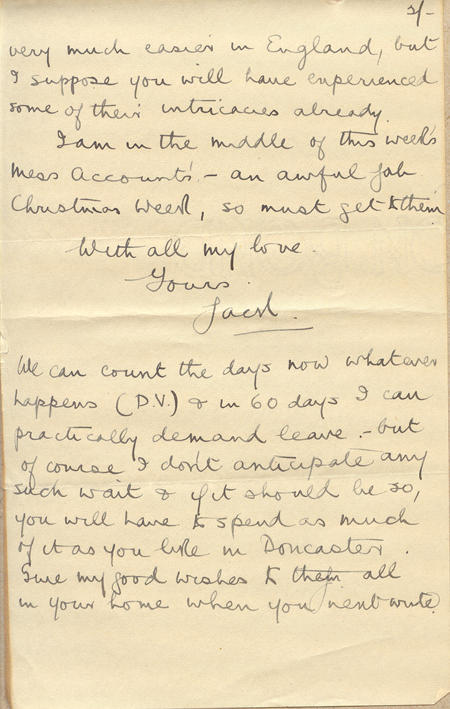 2/-
very much easier in England, but
I suppose you will have experienced
some of their intricacies already.
I am in the middle of this week's
Mess Accounts - an awful job
Christmas Week, so must get to them
With all my love.
Yours
Jack.
We can count the days now whatever
happens (D.V.) & in 60 days I can
practically demand leave. - but
of course I don't anticipate any
such wait & if it should be so,
you will have to spend as much
of it as you like in Doncaster.
Give my good wishes to them all
in your home when you next write